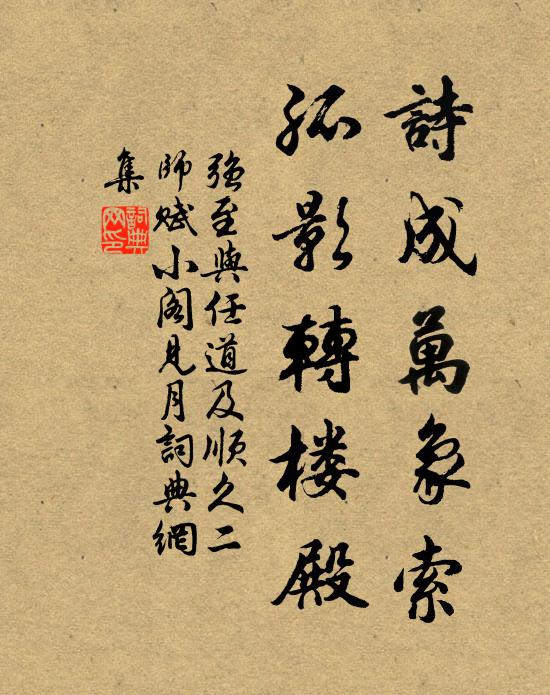 詩成萬象索
孤影轉楼殿
強至與任道及順久二
師賦小閣見月詞典網
集
詞典
网印